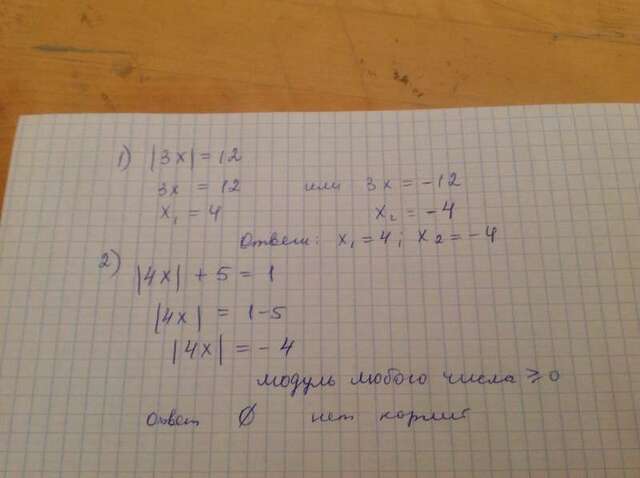 1) |3x| = 12
3x = 12 или 3x = -12
x₁ = 4 x₂ = -4
Ответ: x₁ = 4; x₂ = -4
2) |4x| + 5 = 1
|4x| = 1-5
|4x| = -4
модуль любого числа ≥ 0
ответ Ø нет корней